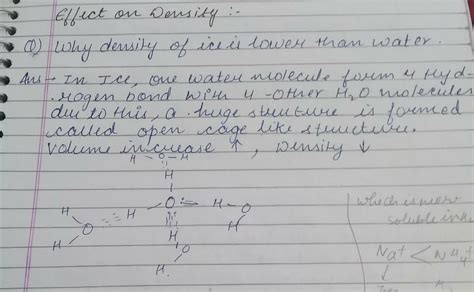 Effect on Density :-
Q) Why density of ice is lower than water.
Ans - In Ice, one water molecule form 4 Hyd-
-rogen bond with 4 - Other H2O molecules
due to this, a huge structure is formed
called open cage like structure.
Volume increase ↑, Density ↓
H O H
H
H O H O H
H O H
H H
O
H
which is more
soluble in
Na+ < NH4+